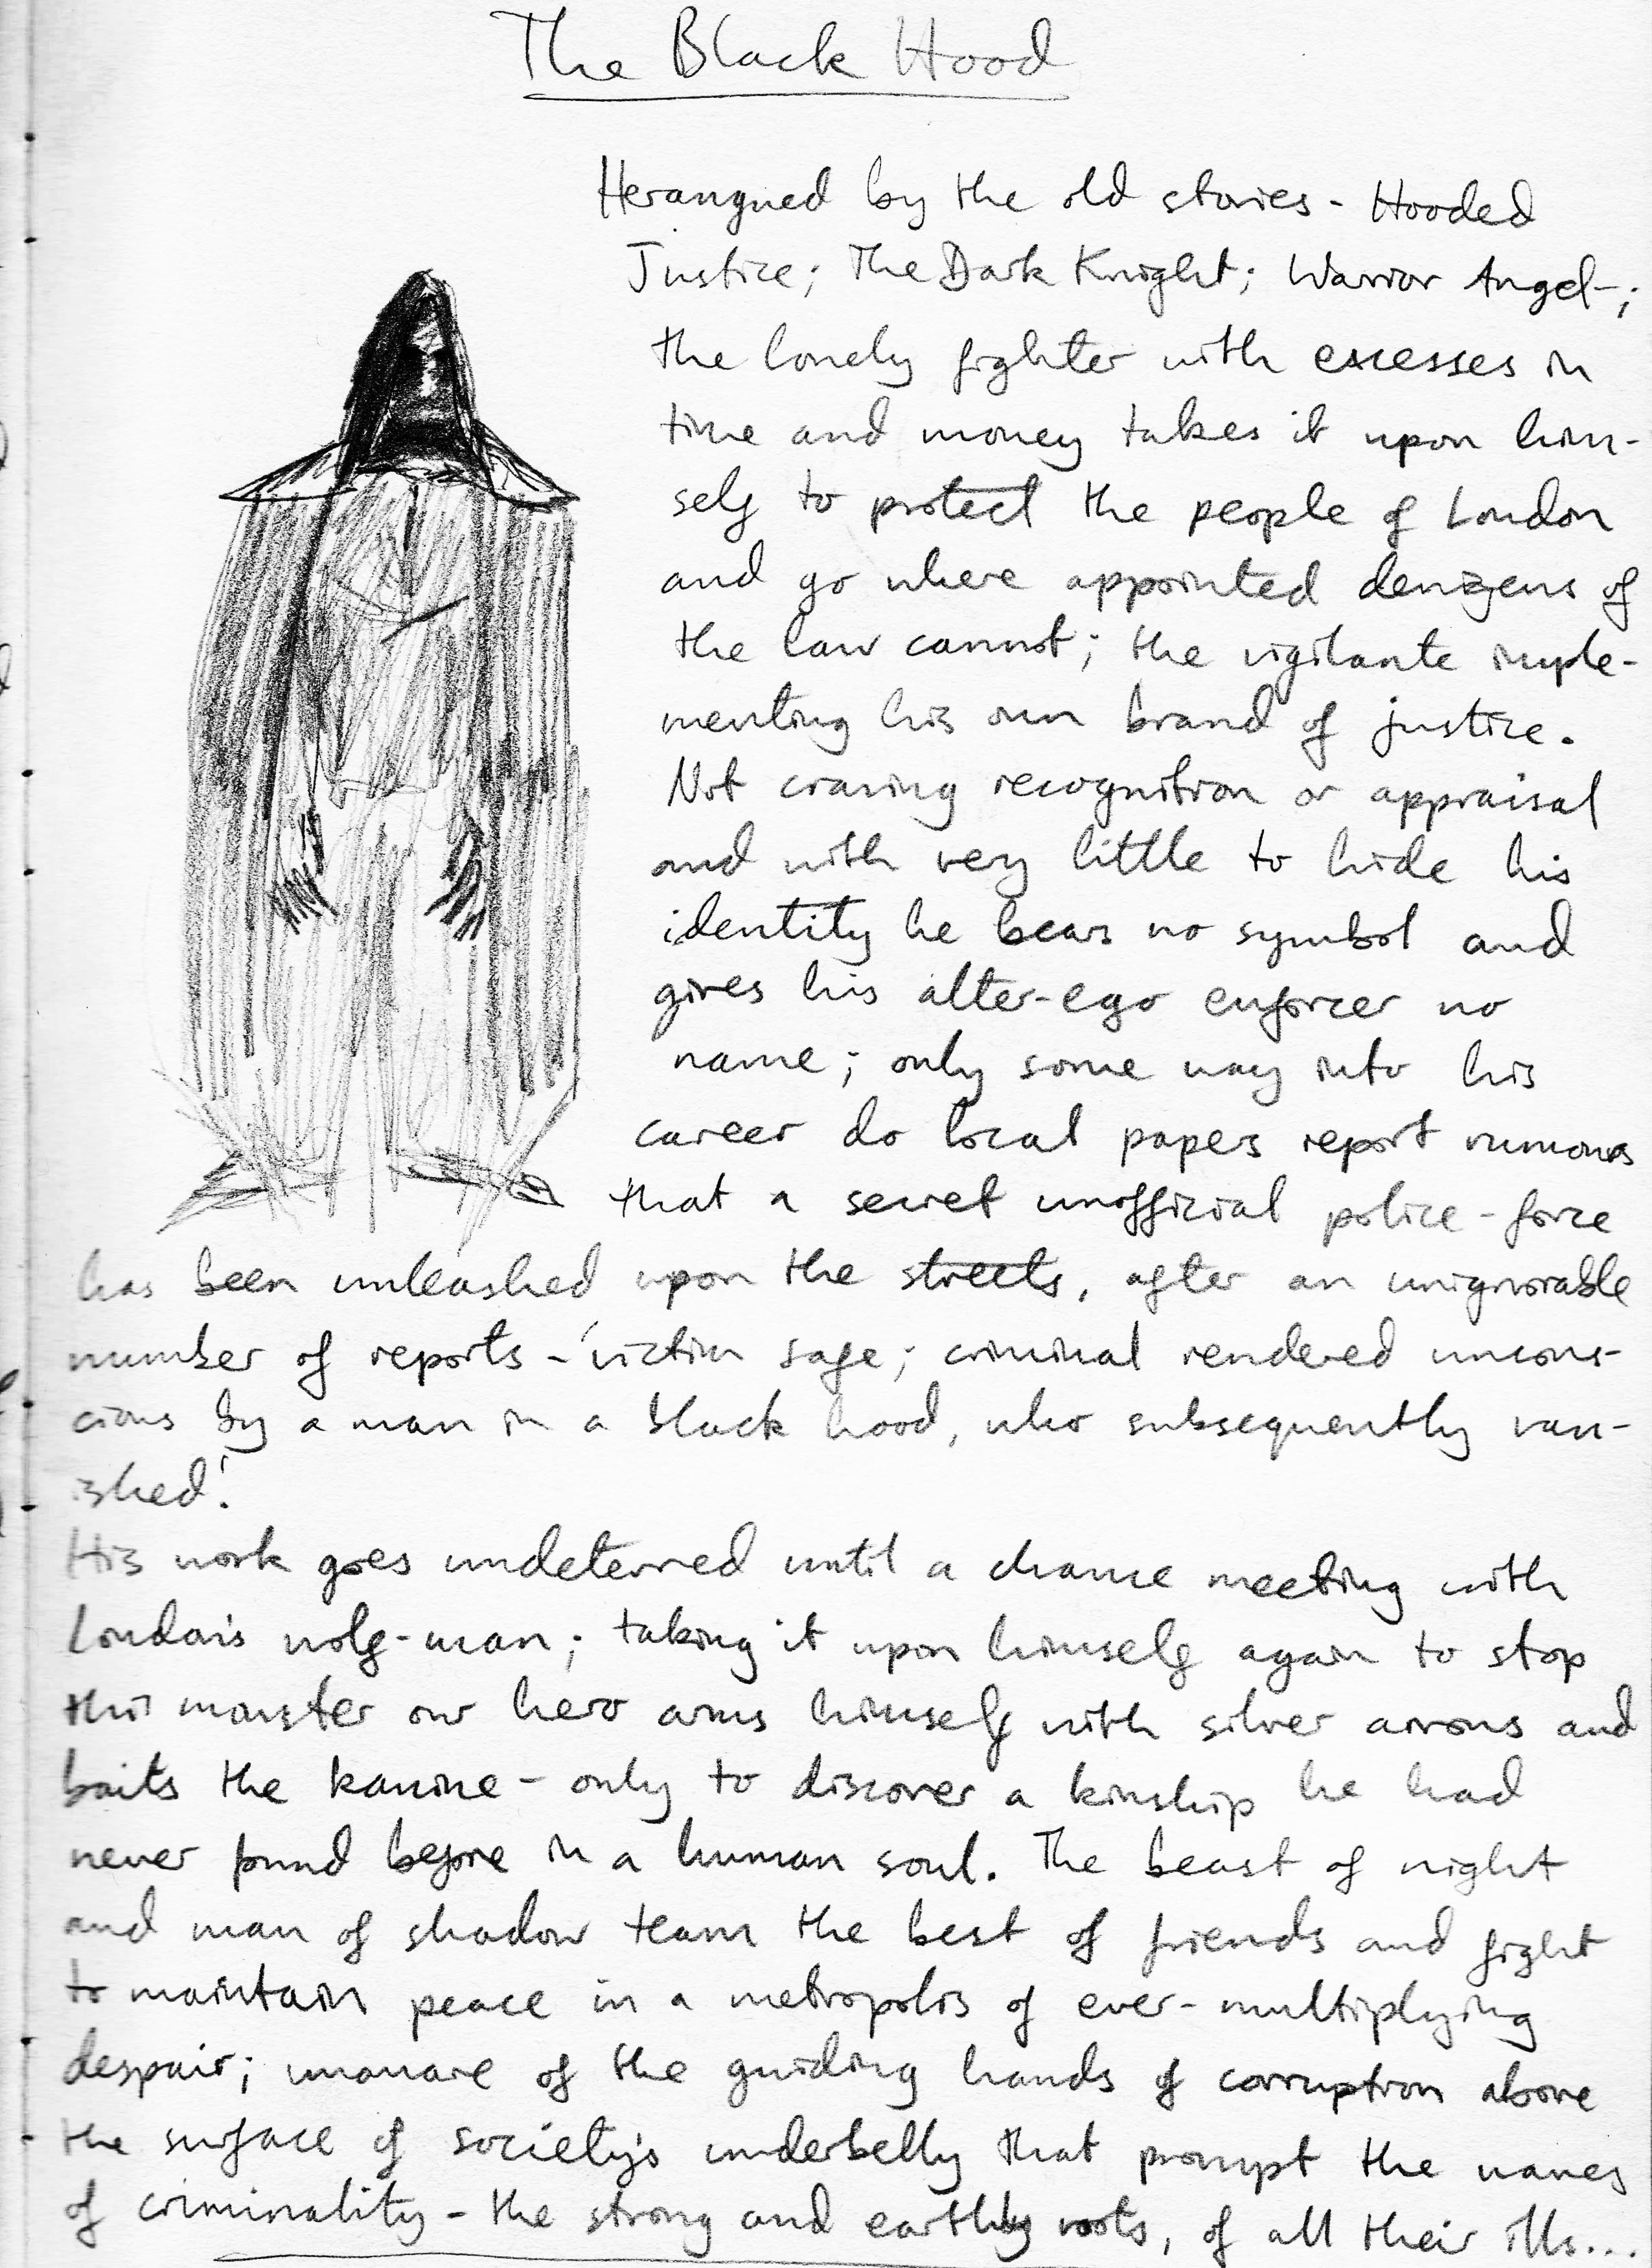 The Black Hood
Herangued by the old stories - Hooded
Justice; The Dark Knight; Warrior Angel-;
the lonely fighter with excesses in
time and money takes it upon him-
self to protect the people of London
and go where appointed denizens of
the law cannot; the vigilante imple-
menting his own brand of justice.
Not craving recognition or appraisal
and with very little to hide his
identity he bears no symbol and
gives his alter-ego enforcer no
name; only some way into his
career do local papers report rumours
that a secret unofficial police-force
has been unleashed upon the streets, after an unignorable
number of reports - 'victim safe; criminal rendered uncons-
cious by a man in a black hood, who subsequently van-
ished.'
His work goes undeterred until a chance meeting with
London's wolf-man; taking it upon himself again to stop
this monster our hero arms himself with silver arrows and
baits the kanine - only to discover a kinship he had
never found before in a human soul. The beast of night
and man of shadow team the best of friends and fight
to maintain peace in a metropolis of ever-multiplying
despair; unaware of the guiding hands of corruption above
the surface of society's underbelly that prompt the waves
of criminality - the strong and earthly roots, of all their ills...